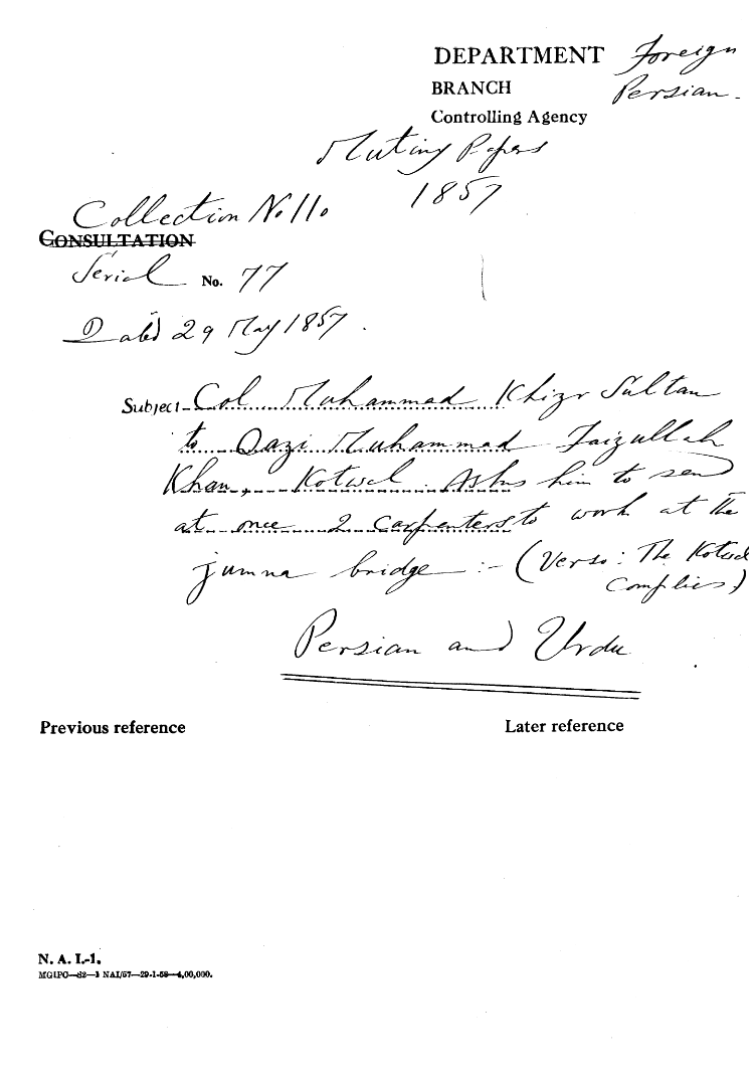 DEPARTMENT Foreign
BRANCH Persian -
Controlling Agency
Mutiny Papers
1857
Collection No. 110
CONSULTATION
Serial No. 77
Dated 29 May 1857.
Subject- Col Muhammad Khizr Sultan
to Qazi Muhammad Faizullah
Khan, Kotwal. Asks him to send
at once 2 carpenters to work at the
jumna bridge :- (Verso: The Kotwal
complies)
Persian and Urdu
Previous reference Later reference
N. A. I.-1.
MGIPC—82—3 NAI/57—29-1-58—4,00,000.